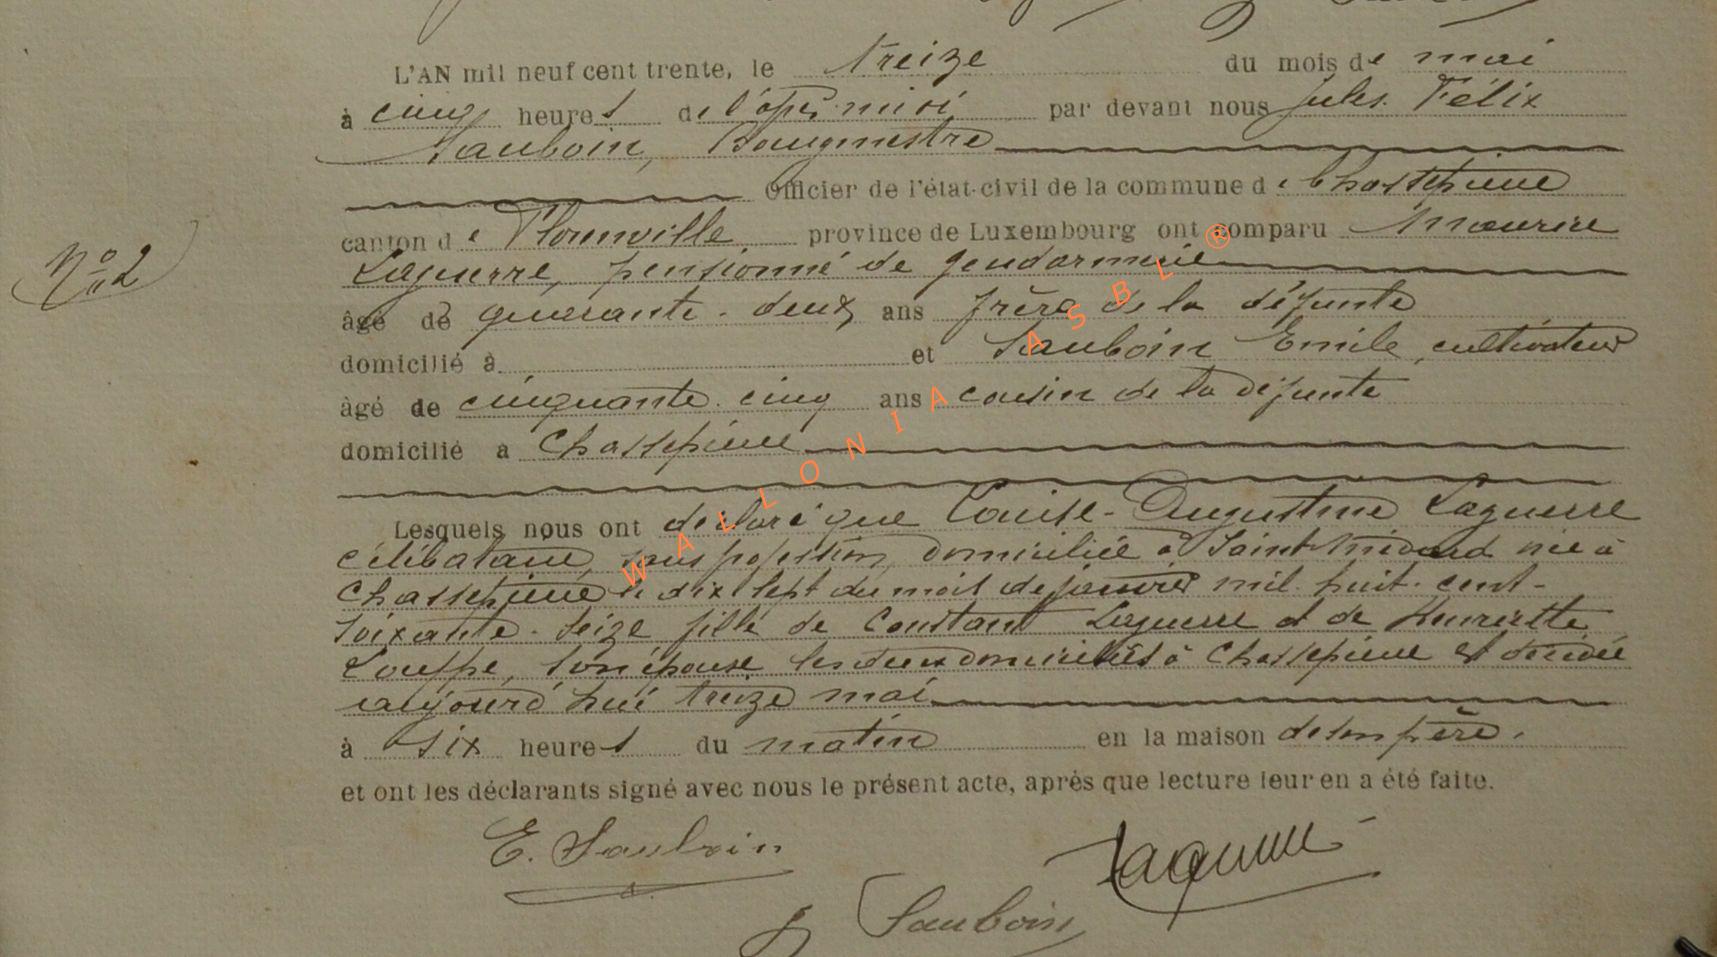 L'AN mil neuf cent trente, le treize du mois de mai
à cinq heures de l'après-midi par devant nous Jules Félix
Sauboin, Bourgmestre
Officier de l'état-civil de la commune de Chassepierre
canton de Florenville province de Luxembourg ont comparu Maurice
Laguerre, pensionné de gendarmerie
âgé de quarante-deux ans frère de la défunte
domicilié à et Sauboin Emile, cultivateur
âgé de cinquante-cinq ans cousin de la défunte
domicilié a Chassepierre
Lesquels nous ont déclaré que Louise-Augustine Laguerre
célibataire, sans profession, domiciliée à Saint-Médard née à
Chassepierre le dix sept du mois de janvier mil-huit-cent-
soixante-seize fille de Constant Laguerre et de Henriette
Loupe, son épouse les deux domiciliés à Chassepierre est décédée
aujourd'hui treize mai
à six heures du matin en la maison de son père.
et ont les déclarants signé avec nous le présent acte, après que lecture leur en a été faite.
N° 2
E. Sauboin
Laguerre
J Sauboin
WALLONIA ASBL ®